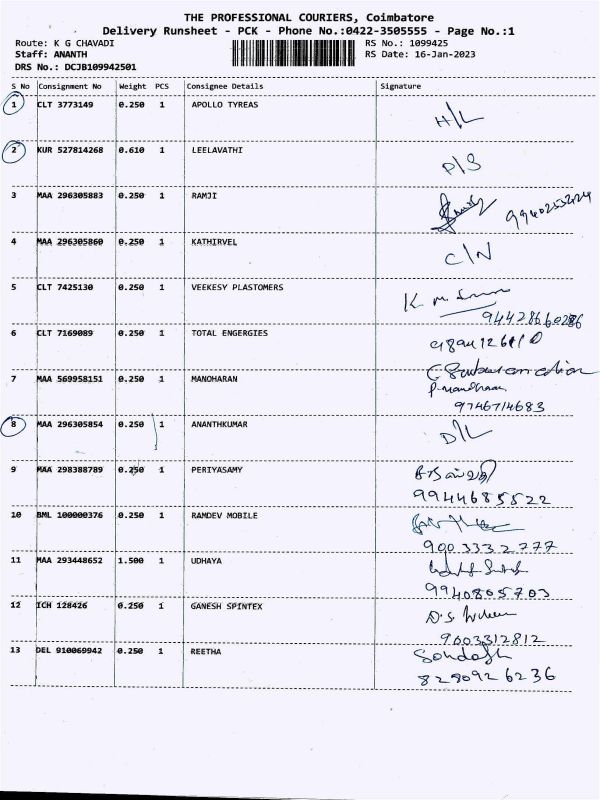 THE PROFESSIONAL COURIERS, Coimbatore
Delivery Runsheet - PCK - Phone No.:0422-3505555 - Page No.:1
Route: K G CHAVADI RS No.: 1099425
Staff: ANANTH RS Date: 16-Jan-2023
DRS No.: DCJB109942501
S No Consignment No Weight PCS Consignee Details Signature
1 CLT 3773149 0.250 1 APOLLO TYREAS H/L
2 KUR 527814268 0.610 1 LEELAVATHI P/S
3 MAA 296305883 0.250 1 RAMJI
4 MAA 296305860 0.250 1 KATHIRVEL C/N
5 CLT 7425130 0.250 1 VEEKESY PLASTOMERS
94428660286
6 CLT 7169089 0.250 1 TOTAL ENGERGIES
7 MAA 569958151 0.250 1 MANOHARAN
9746714683
8 MAA 296305854 0.250 1 ANANTHKUMAR D/L
9 MAA 298388789 0.250 1 PERIYASAMY
9944685522
10 BML 100000376 0.250 1 RAMDEV MOBILE
9003332777
11 MAA 293448652 1.500 1 UDHAYA
9940805703
12 ICH 128426 0.250 1 GANESH SPINTEX
9003312812
13 DEL 910069942 0.250 1 REETHA
8280926236